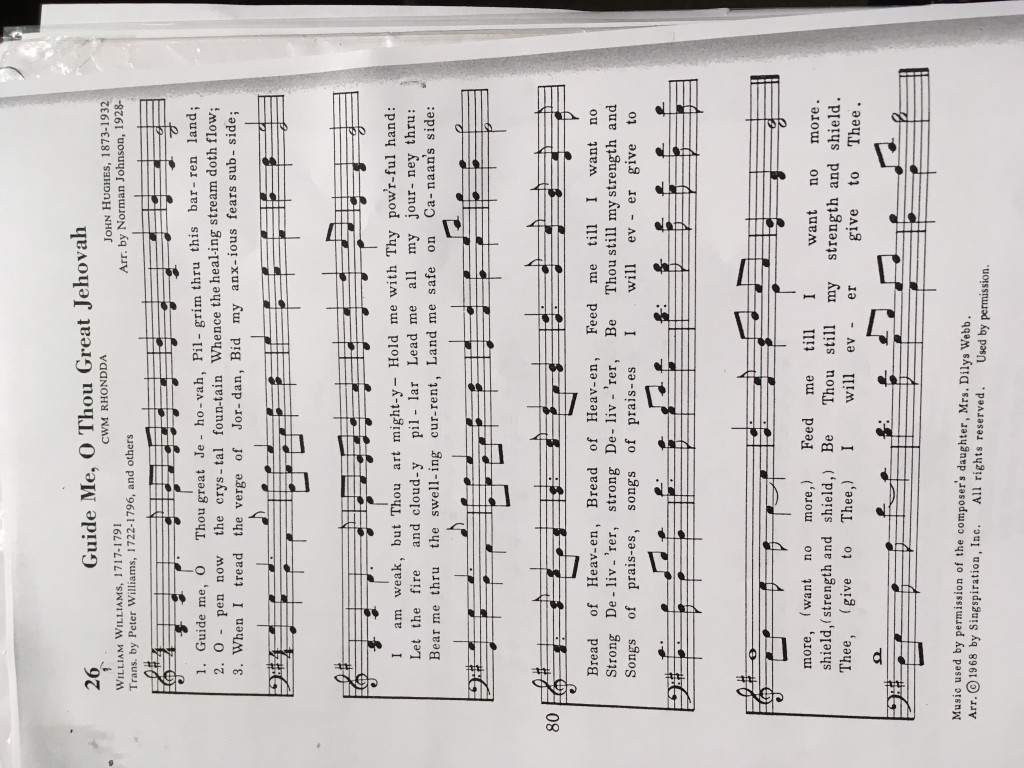 26
Guide Me, O Thou Great Jehovah
WILLIAM WILLIAMS, 1717-1791
Trans. by Peter Williams, 1722-1796, and others
CWM RHONDDA
JOHN HUGHES, 1873-1932
Arr. by Norman Johnson, 1928-
4
4
1. Guide me, O Thou great Je - ho - vah, Pil - grim thru this bar - ren land;
2. O - pen now the crys - tal foun - tain Whence the heal - ing stream doth flow;
3. When I tread the verge of Jor - dan, Bid my anx - ious fears sub - side;
4
4
I am weak, but Thou art might - y — Hold me with Thy pow'r - ful hand:
Let the fire and cloud - y pil - lar Lead me all my jour - ney thru:
Bear me thru the swell - ing cur - rent, Land me safe on Ca - naan's side:
Bread of Heav - en, Bread of Heav - en, Feed me till I want no
Strong De - liv - 'rer, strong De - liv - 'rer, Be Thou still my strength and
Songs of prais - es, songs of prais - es I will ev - er give to
80
more, (want no more,) Feed me till I want no more.
shield, (strength and shield,) Be Thou still my strength and shield.
Thee, (give to Thee,) I will ev - er give to Thee.
Music used by permission of the composer's daughter, Mrs. Dilys Webb.
Arr. © 1968 by Singspiration, Inc. All rights reserved. Used by permission.